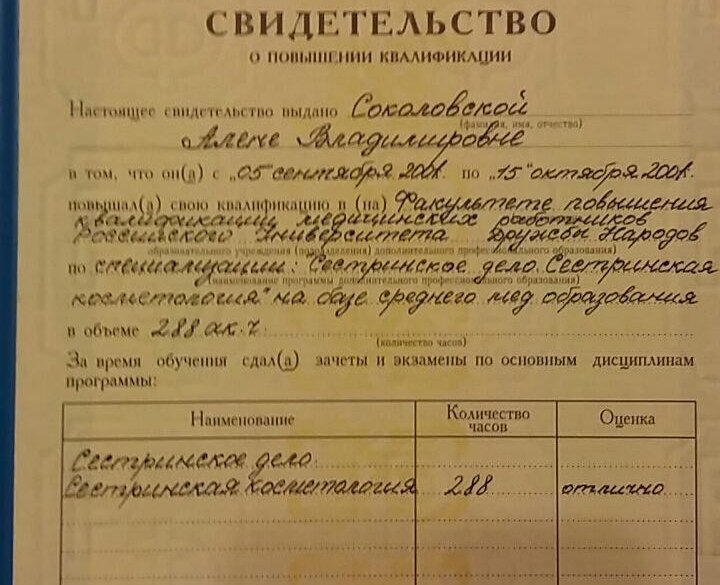 СВИДЕТЕЛЬСТВО
О ПОВЫШЕНИИ КВАЛИФИКАЦИИ
Настоящее свидетельство выдано Соколовской
(фамилия, имя, отчество)
Алене Владимировне
в том, что он(а) с „05 сентября 2001. по „15“ октября 2001.
повышал(а) свою квалификацию в (на) Факультете повышения
квалификации медицинских работников
Российского Университета Дружбы Народов
образовательного учреждения (подразделения) дополнительного профессионального образования)
по специализации: Сестринское дело. Сестринская
(наименование программы дополнительного профессионального образования)
косметология" на базе среднего мед образования
в объеме 288 ак.ч.
(количество часов)
За время обучения сдал(а) зачеты и экзамены по основным дисциплинам
программы:
Наименование Количество часов Оценка
Сестринское дело.
Сестринская косметология 288 отлично